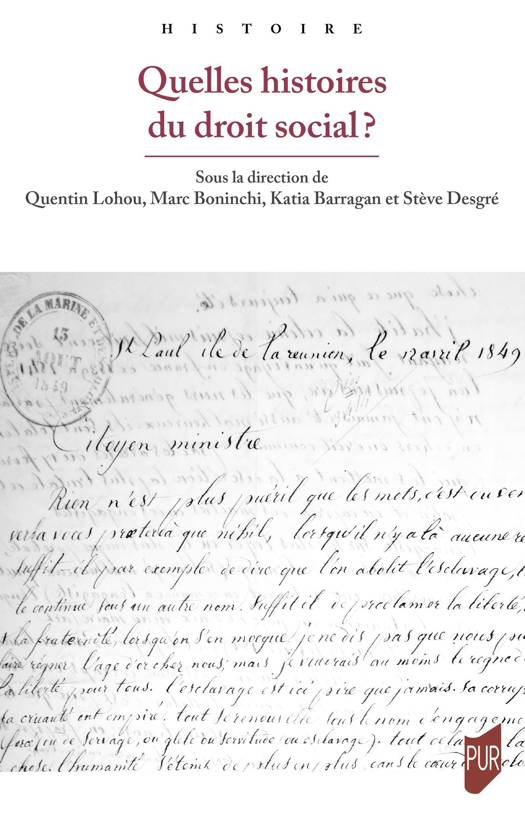 HISTOIRE
Quelles histoires
du droit social ?
Sous la direction de
Quentin Lohou, Marc Boninchi, Katia Barragan et Stève Desgré
DE LA MARINE ET
15
AOUT
1849
St Paul ile de la reunion, le 12 avril 1849
Citoyen ministre
Rien n'est plus puéril que les mots, c'est
verba voces prætereà que nihil, lorsqu'il n'y a là aucune
suffit il par exemple de dire que l'on abolit l'esclavage,
le continue sous un autre nom. Suffit il de proclamer la liberté,
la fraternité, lorsqu'on s'en mocque je ne dis pas que nous
faire regner l'âge d'or chez nous; mais je voudrais au moins le regne d
la liberté pour tous. l'esclavage est ici pire que jamais. sa
sa cruauté ont empiré. tout se renouvelle sous le nom d'engageme
de servage, ou glèbe ou servitude ou esclavage). tout cela la
chose. l'humanité s'éteint de plus en plus dans le cœur
PUR